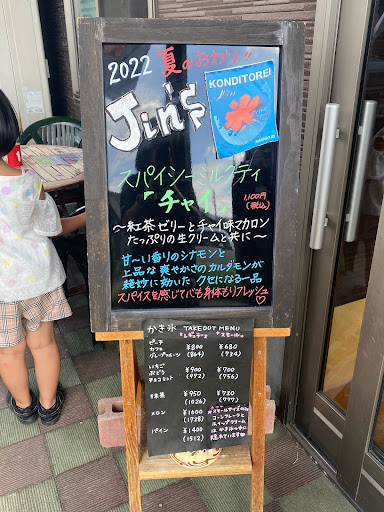 2022 夏のおわり!!
Jin's
KONDITOREI
氷
スパイシーミルクティ
「チャイ」
1,100円
(税込)
〜紅茶ゼリーとチャイ味マカロン
たっぷりの生クリームと共に〜
甘〜い香りのシナモンと
上品な爽やかさのカルダモンが
絶妙に効いたクセになる一品
スパイスを感じて心も身体もリフレッシュ♡
かき氷 TAKEOUT MENU
レギュラー スモール
ピーチ
カフェ
グレープフルーツ
¥800 ¥680
(864) (734)
いちご
ぶどう
チョコミント
¥900 ¥700
(972) (756)
宇治茶
¥950 ¥720
(1026) (777)
メロン
¥1600
(1728)
パイン
¥1400
(1512)
スモールサイズは
コーンフレークと
ホイップクリーム